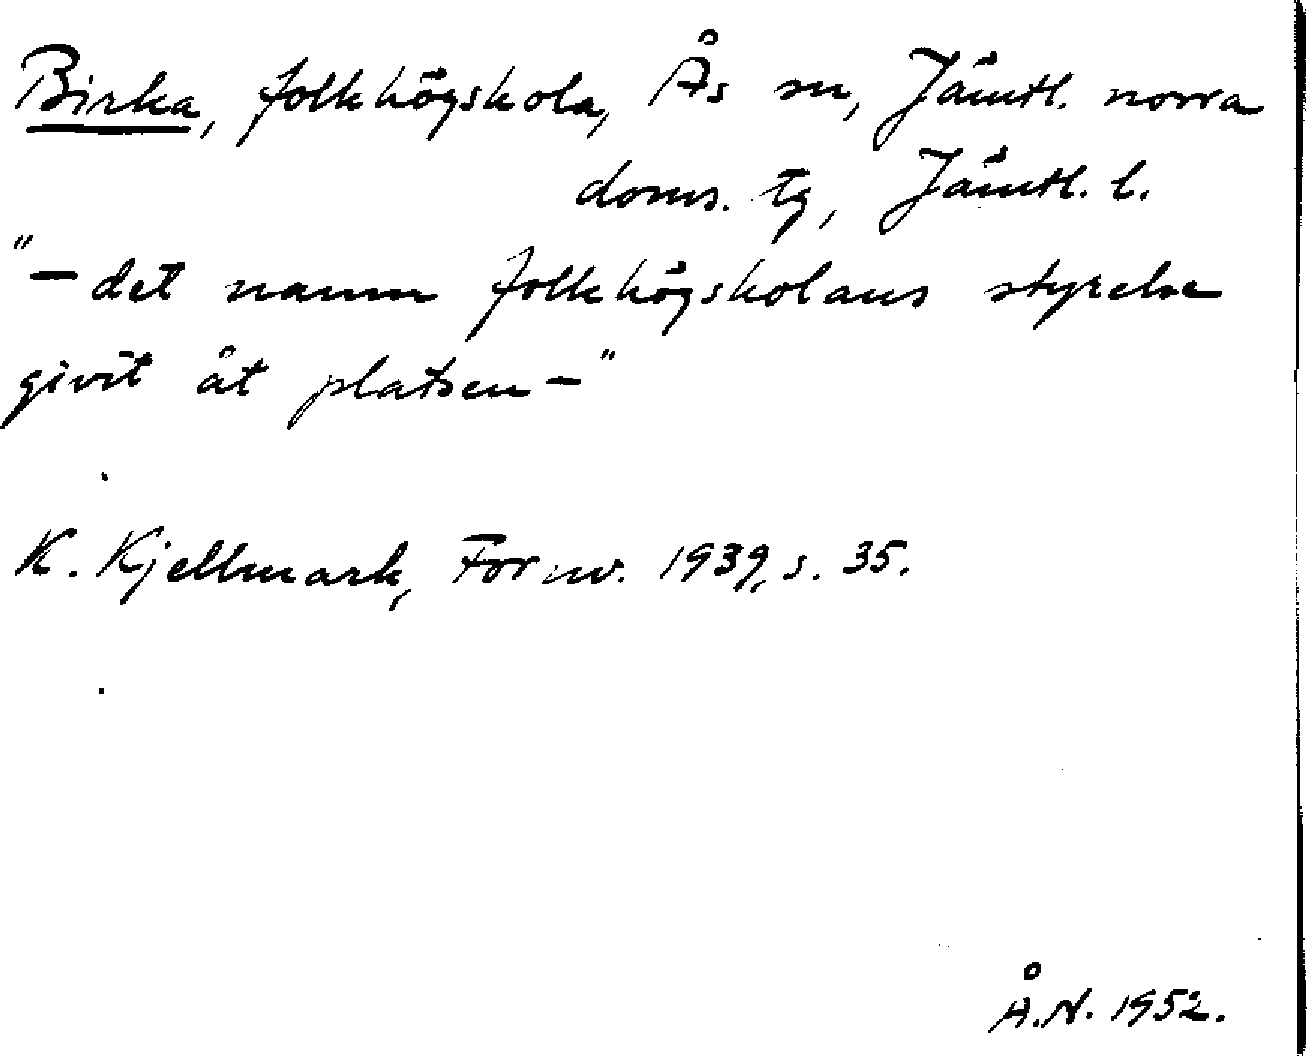 Birka, folkhögskola, Ås sn, Jämtl. norra
doms. tg, Jämtl. l.
"— det namn folkhögskolans styrelse
givit åt platsen —"
K. Kjellmark, Fornv. 1939, s. 35.
Å.N. 1952.